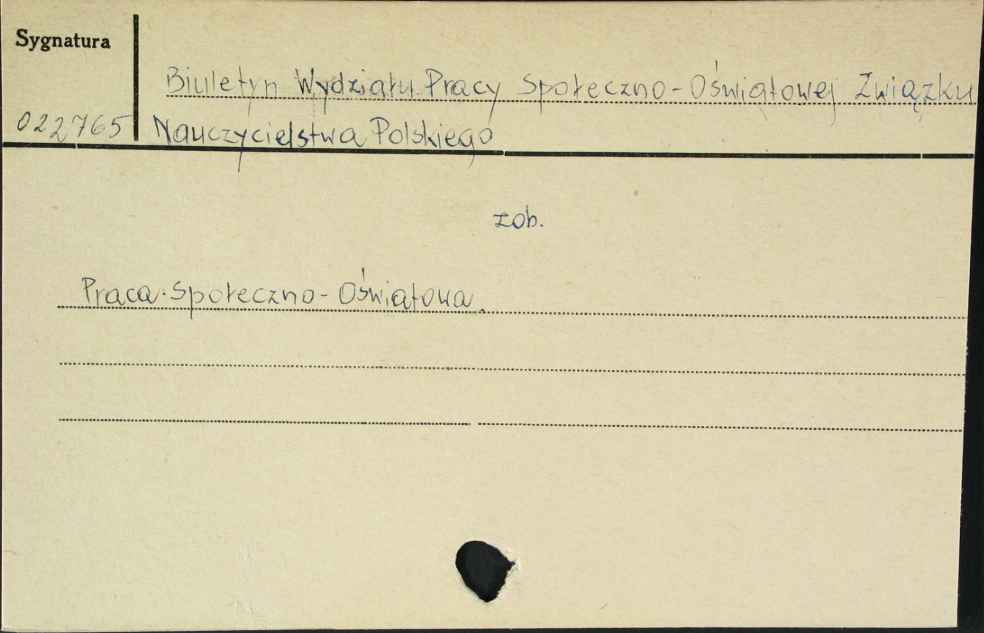 Sygnatura
Biuletyn Wydziału Pracy Społeczno-Oświatowej Związku
022765 Nauczycielstwa Polskiego
zob.
Praca Społeczno-Oświatowa.